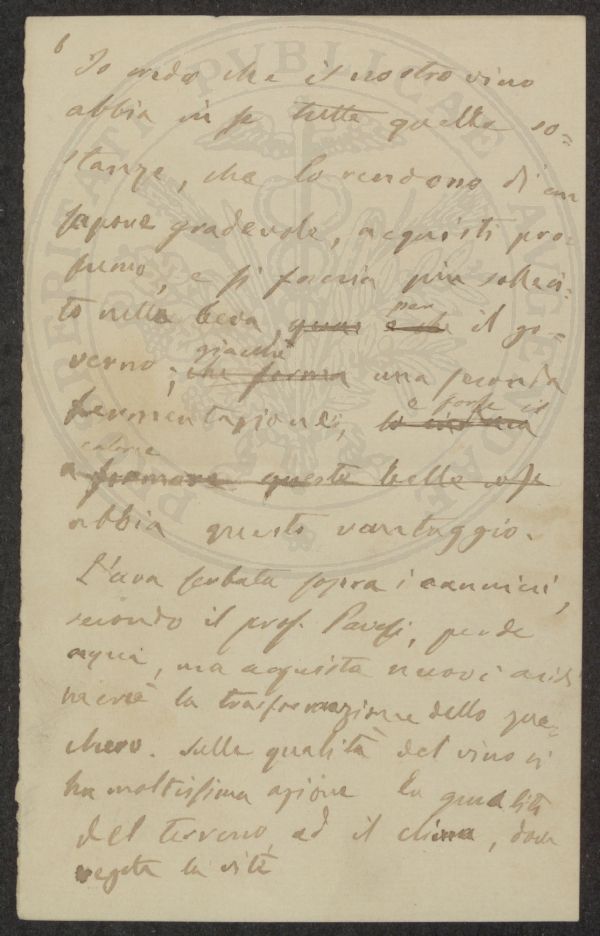 6
Io credo che il nostro vino
abbia in se tutte quelle so-
stanze, che lo rendono di un
sapore gradevole, acquisti pro-
fumo, e si faccia più solleci-
to nella beva, per il go-
verno; giacchè una seconda
fermentazione, e forse il
calore
abbia questo vantaggio.
L'uva serbata sopra i cannicci,
secondo il prof. Pavesi, perde
acqua, ma acquista nuovi acidi
la trasformazione dello zuc-
chero. Sulla qualità del vino vi
ha moltissima azione la qualità
del terreno, ed il clima, dove
vegeta la vite
PROSPERITATI PUBLICAE AUGENDAE